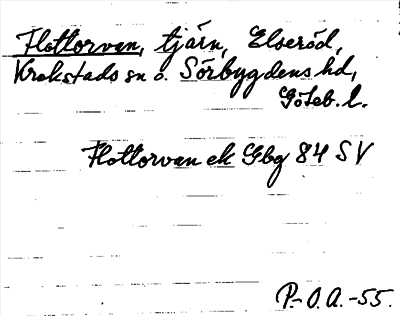 Flottorvan, tjärn, Elseröd,
Krokstads sn o. Sörbygdens hd,
Göteb. l.
Flottorvan ek Gbg 84 SV
P.-O.A.-55.